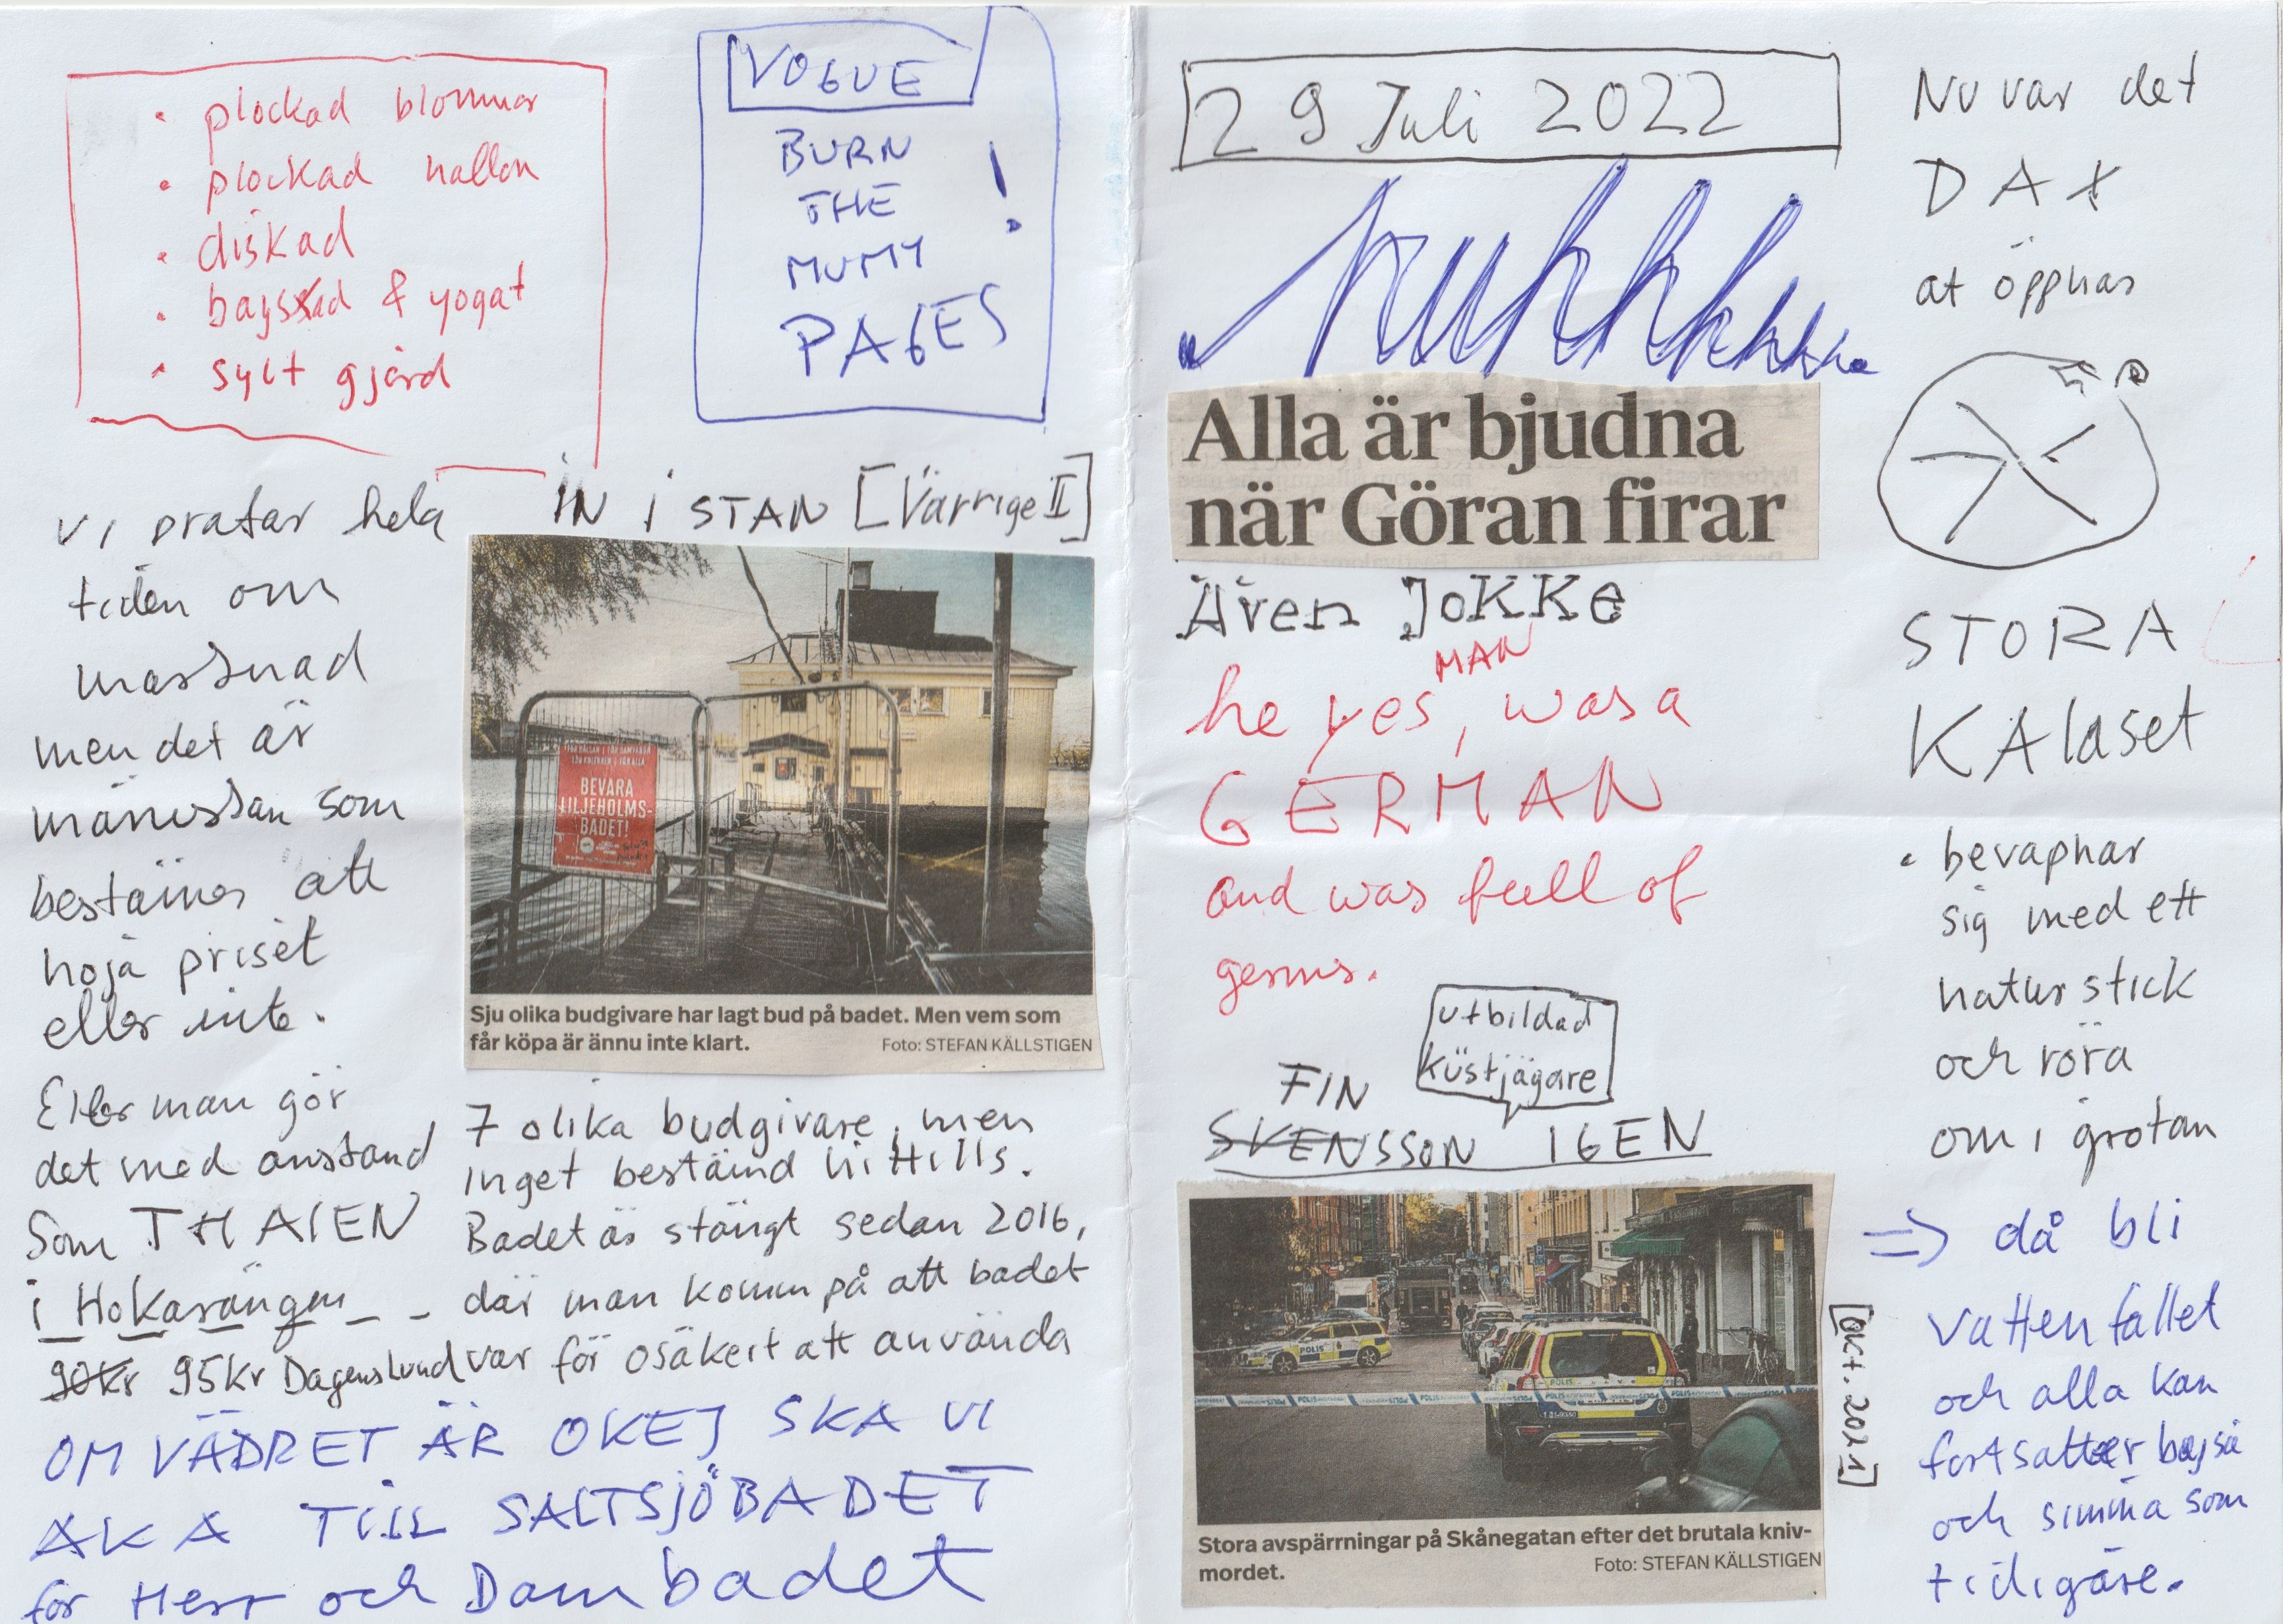 • plockad blommor
• plockad hallon
• diskad
• bajsad & yogat
• sylt gjord
VOGUE
BURN
THE
MUMY
PAGES
!
vi pratar hela
tiden om
marknad
men det är
männistan som
bestämer att
höja priset
eller inte.
Eller man gör
det med anstand
som THAIEN
i Hökarängen _ _
90kr 95kr Dagens Lund
IN i STAN [Värrige II]
BEVARA
LILJEHOLMS-
BADET!
Sju olika budgivare har lagt bud på badet. Men vem som
får köpa är ännu inte klart.
Foto: STEFAN KÄLLSTIGEN
7 olika budgivare, men
inget bestämd hittills.
Badet är stängt sedan 2016,
där man komm på att badet
var för osäkert att använda
OM VÄDRET ÄR OKEJ SKA VI
ÅKA TILL SALTSJÖBADET
för Herr och Dambadet
29 Juli 2022
Alla är bjudna
när Göran firar
Även JOKKE
MAN
he yes, was a
GERMAN
and was full of
germs.
utbildad
küstjägare
FIN
SVENSSON IGEN
POLIS
POLIS
Stora avspärrningar på Skånegatan efter det brutala kniv-
mordet.
Foto: STEFAN KÄLLSTIGEN
[OKT. 2021]
Nu var det
DAX
at öppnas
STORA
KAlaset
• bevapnar
sig med ett
natur stick
och röra
om i grotan
=> då bli
Vattenfallet
och alla kan
fortsatter bajsa
och simma som
tidigare.